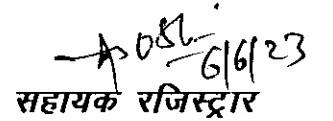 6/6/23
सहायक रजिस्ट्रार